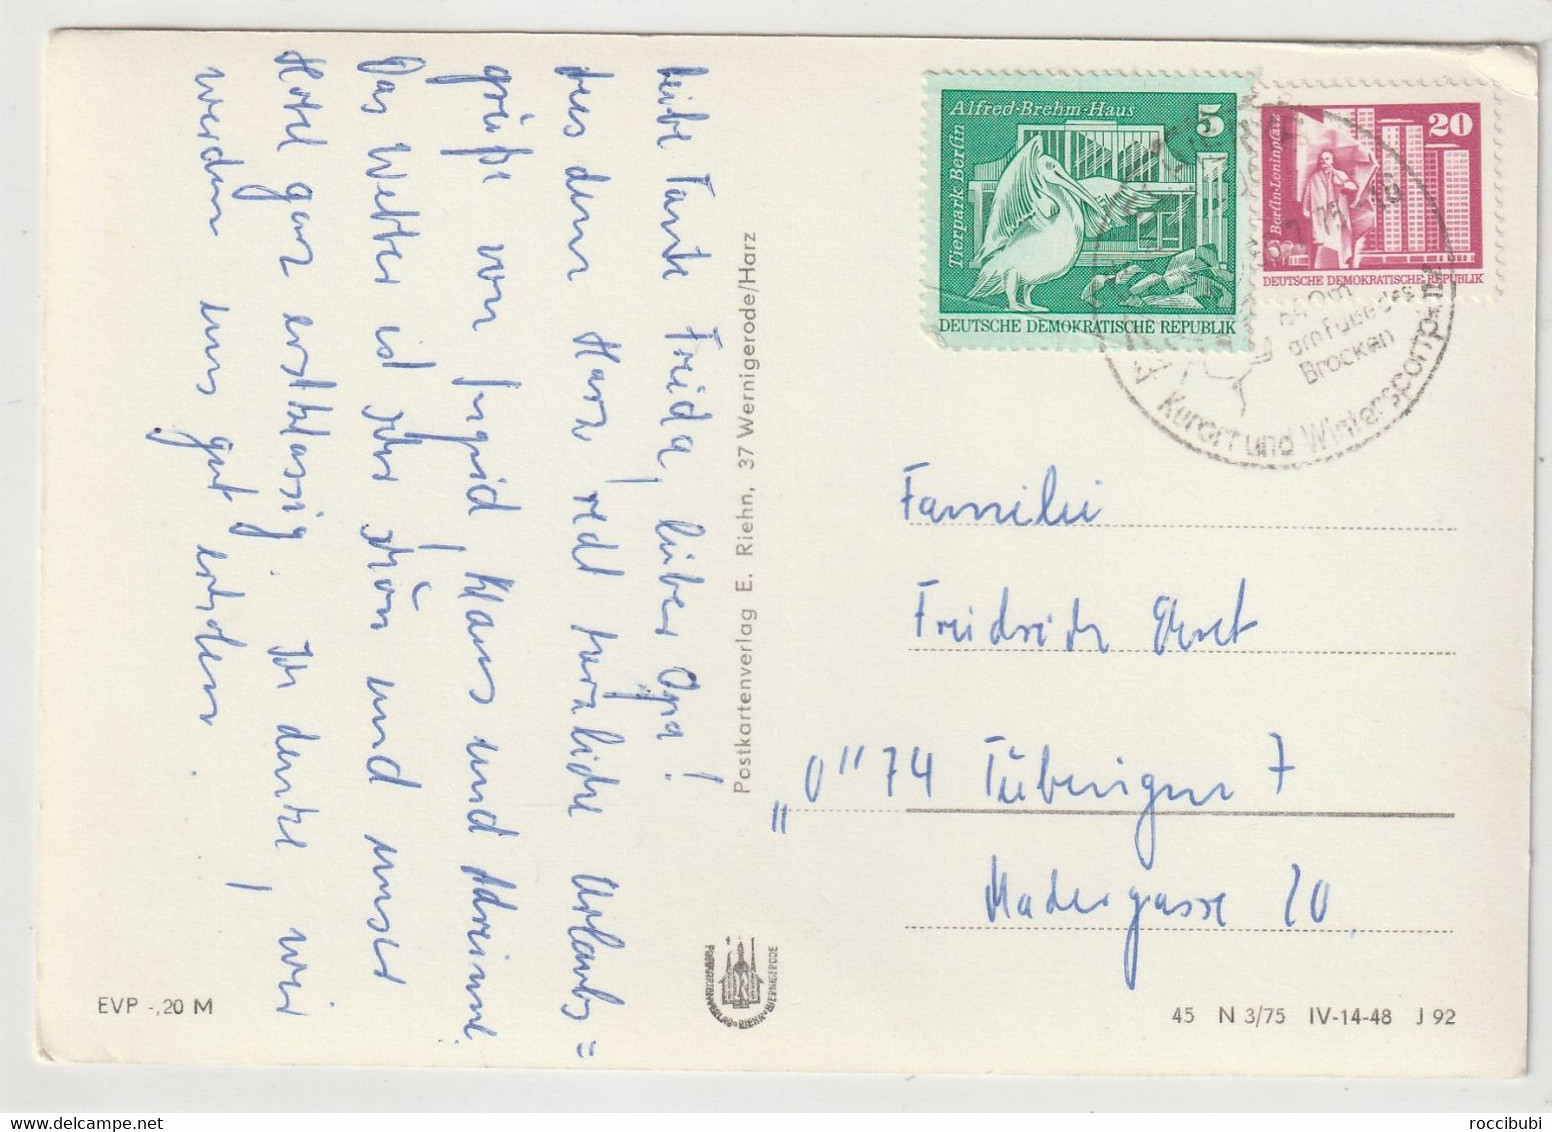 Liebe Tante Frieda, lieber Opa!
Aus dem Harz recht herzliche Urlaubs=
grüße von Ingrid, Klaus und
Das Wetter ist sehr schön und unser
Hotel ganz erstklassig. Ich denke, wir
werden uns gut erholen.
Postkartenverlag E. Riehn, 37 Wernigerode/Harz
EVP -,20 M
POSTKARTENVERLAG • RIEHN • WERNIGERODE
Alfred-Brehm-Haus 5
Tierpark Berlin
DEUTSCHE DEMOKRATISCHE REPUBLIK
20
Berlin-Leninplatz
DEUTSCHE DEMOKRATISCHE REPUBLIK
75-16
640m
am Fuße des
Brocken
Kurort und Wintersportplatz
Familie
Friedrich
"O" 74 Tübingen 7
Madergasse 20
45 N 3/75 IV-14-48 J 92
roccibubi